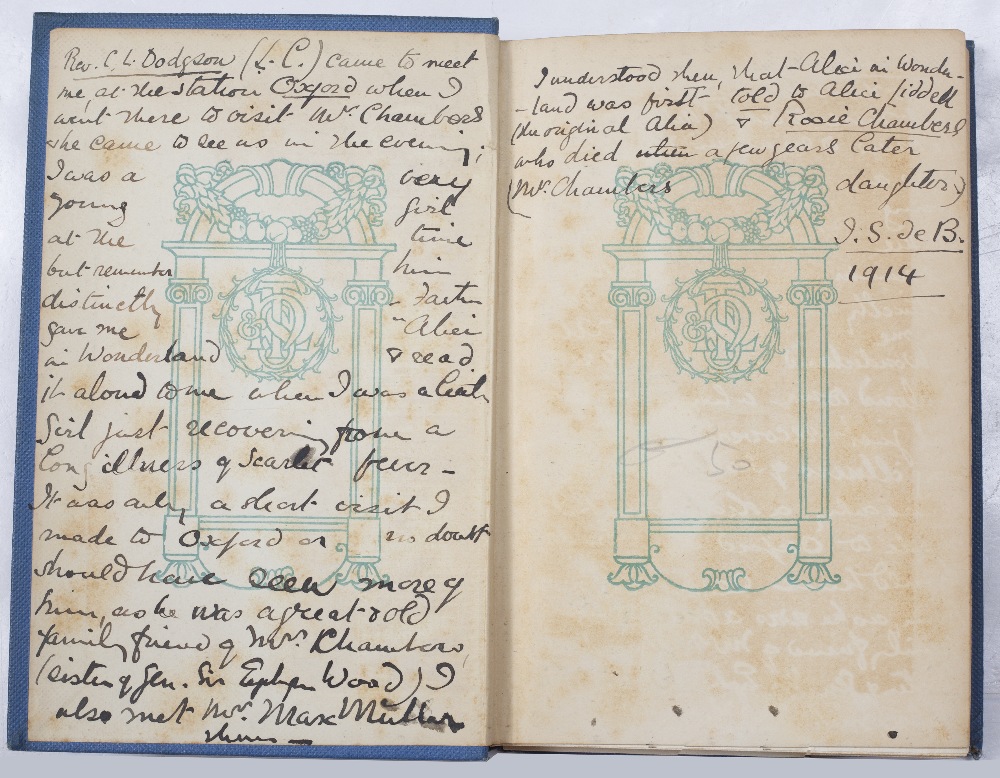 Rev. C. L. Dodgson (L. C.) came to meet
me at the station Oxford when I
went there to visit Mrs. Chambers
& he came to see us in the evening;
I was a very
young girl
at the time
but remember him
distinctly –
gave me "Alice
in Wonderland & read
it aloud to me when I was a little
girl just recovering from a
long illness of scarlet fever –
It was only a short visit I
made to Oxford or no doubt
should have seen more of
him, as he was a great & old
family friend of Mrs. Chambers,
(sister of Gen. Sir Evelyn Wood) I
also met Mrs. Max Müller
there –
I understood then, that Alice in Wonder-
-land was first told to Alice Liddell
(the original Alice) & Rosie Chambers
who died when a few years later
(Mrs. Chambers daughter)
I. S. de B.
1914
50